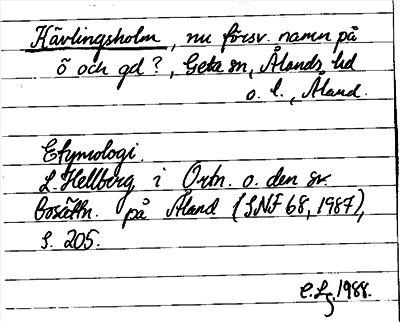 Kävlingsholm, nu försv. namn på
ö och gd?, Geta sn, Ålands hd
o. l., Åland.
Etymologi.
L. Hellberg i Ortn. o. den sv.
bosättn. på Åland (SNF 68, 1987),
s. 205.
C.Lg. 1988.